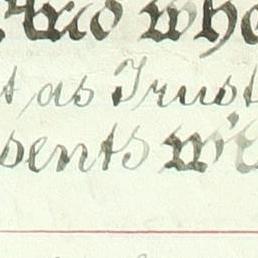 And whe
t as Trust
sents w